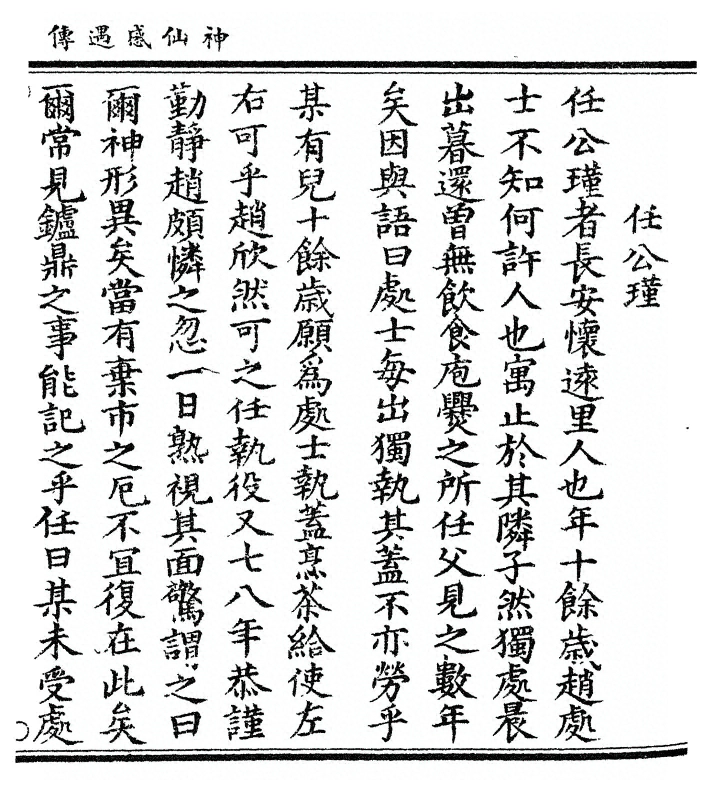 神仙感遇傳
任公瑾
任公瑾者長安懷遠里人也年十餘歲趙處
士不知何許人也寓止於其隣孑然獨處晨
出暮還曾無飲食庖爨之所任父見之數年
矣因與語曰處士每出獨執其蓋不亦勞乎
某有兒十餘歲願爲處士執蓋烹茶給使左
右可乎趙欣然可之任執役又七八年恭謹
勤靜趙頗憐之忽一日熟視其面驚謂之曰
爾神形異矣當有棄市之厄不冝復在此矣
爾常見鑪鼎之事能記之乎任曰某未受處